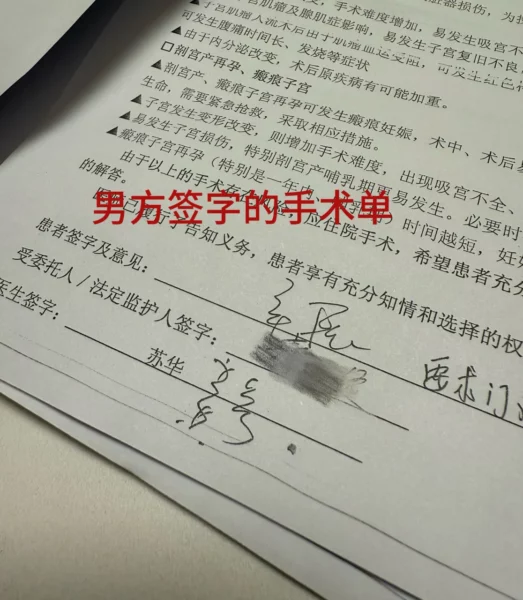 手术难度增加，易发生吸宫不
宫肌瘤及腺肌症影响，易发生子宫复旧不良
可发生腹痛时间长、发烧等症状
▲由于内分泌改变，术后原疾病有可能加重。
□剖宫产再孕、瘢痕子宫
▲剖宫产、瘢痕子宫再孕可发生瘢痕妊娠，术中、术后
生命，需要紧急抢救，采取相应措施。
▲子宫发生变形改变，则增加手术难度，出现吸宫不全、
▲易发生子宫损伤，特别剖宫产哺乳期更易发生。必要时
▲瘢痕子宫再孕（特别是一年内、时间越短，妊
由于以上的手术存在应住院手术，希望患者充分
的解答。
男方签字的手术单
告知义务，患者享有充分知情和选择的权
患者签字及意见：
要求门
受委托人／法定监护人签字：
医生签字：
苏华